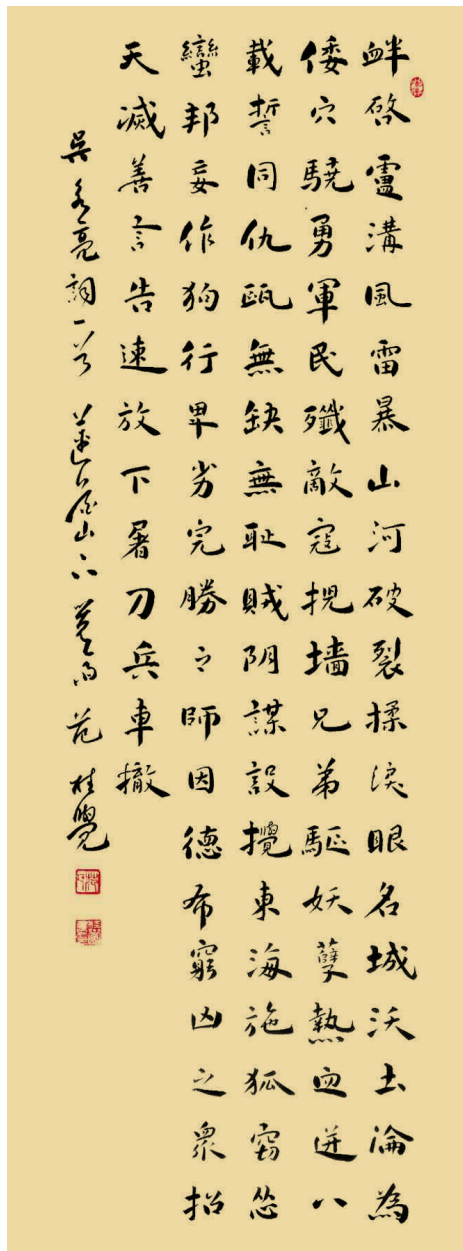 衅啓盧溝風雷暴山河破裂揉淚眼名城沃土淪為
倭穴驍勇軍民殲敵寇挽墻兄弟驅妖孽熱血迸八
載誓同仇甌無缺無恥賊阴謀設攪東海施狐窃怂
蠻邦妄作狗行卑劣完勝之師因德布窮凶之衆招
天滅善言告速放下屠刀兵車撤
吳 亮詞一首 山 范桂覺